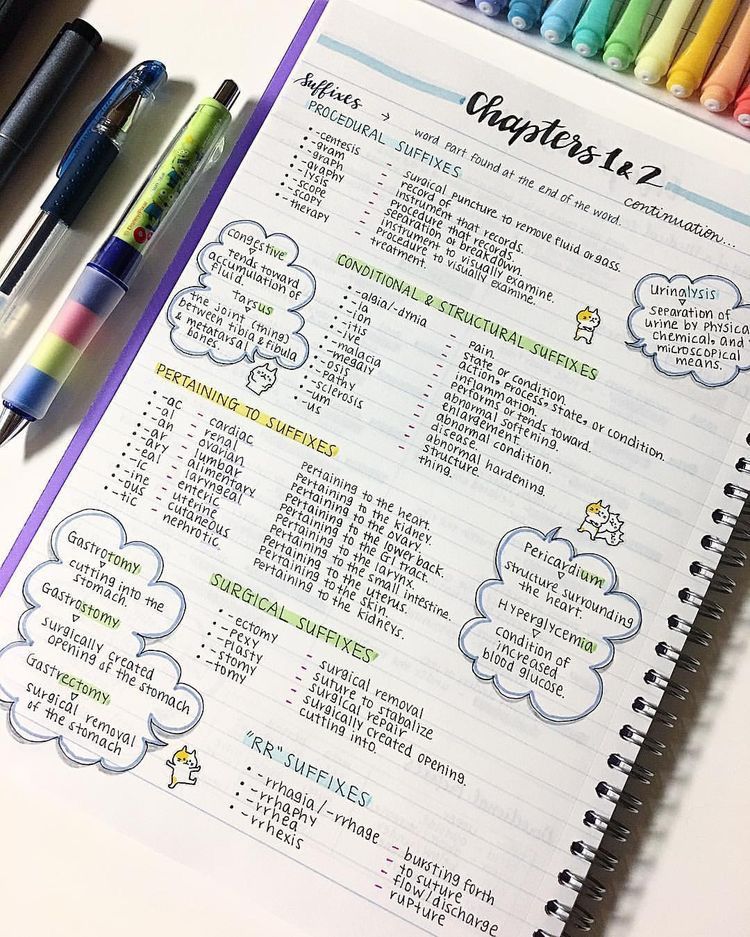 Chapters 1 & 2
continuation...
Suffixes → word part found at the end of the word.
PROCEDURAL SUFFIXES
• -centesis - surgical puncture to remove fluid or gass.
• -gram - record of.
• -graph - instrument that records.
• -graphy - Procedure that records.
• -lysis - separation or breakdown.
• -scope - instrument to visually examine.
• -scopy - Procedure to visually examine.
• -therapy - treatment.
congestive
tends toward
accumulation of
fluid.
tarsus
the joint (thing)
between tibia & fibula
& metatarsal
bones.
CONDITIONAL & STRUCTURAL SUFFIXES
• -algia/-dynia - Pain.
• -ia - state or condition.
• -ion - action, process, state, or condition.
• -itis - inflammation.
• -ive - performs or tends toward.
• -malacia - abnormal softening.
• -megaly - enlargement.
• -osis - abnormal condition.
• -pathy - disease.
• -sclerosis - abnormal hardening.
• -um - structure
• -us - thing.
urinalysis
separation of
urine by Physical,
chemical, and
microscopical
means.
PERTAINING TO SUFFIXES
• -ac - cardiac Pertaining to the heart.
• -al - renal Pertaining to the kidney.
• -an - ovarian Pertaining to the ovary.
• -ar - lumbar Pertaining to the lower back.
• -ary - alimentary Pertaining to the GI tract.
• -eal - laryngeal Pertaining to the larynx.
• -ic - enteric Pertaining to the small intestine.
• -ine - uterine Pertaining to the uterus.
• -ous - cutaneous Pertaining to the skin.
• -tic - nephrotic Pertaining to the kidneys.
Gastrotomy
cutting into the
stomach.
Gastrostomy
surgically created
opening of the stomach
Gastrectomy
surgical removal
of the stomach
Pericardium
structure surrounding
the heart.
Hyperglycemia
condition of
increased
blood glucose.
SURGICAL SUFFIXES
• -ectomy - surgical removal
• -pexy - suture to stabalize
• -plasty - surgical repair
• -stomy - surgically created opening.
• -tomy - cutting into.
"RR" SUFFIXES
• -rrhagia/-rrhage - bursting forth
• -rrhaphy - to suture
• -rrhea - flow/discharge
• -rrhexis - rupture